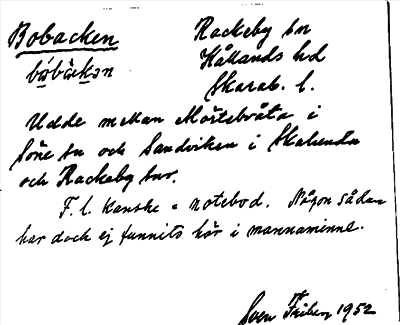 Bobacken
Rackeby sn
Kållands hd
Skarab. l.
Udde mellan Mörtebråta i
Söne sn och Sandviken i Skalunda
och Rackeby snr.
F. l. kanske = notebod. Någon sådan
har dock ej funnits här i mannaminne.
Sven Friberg 1952